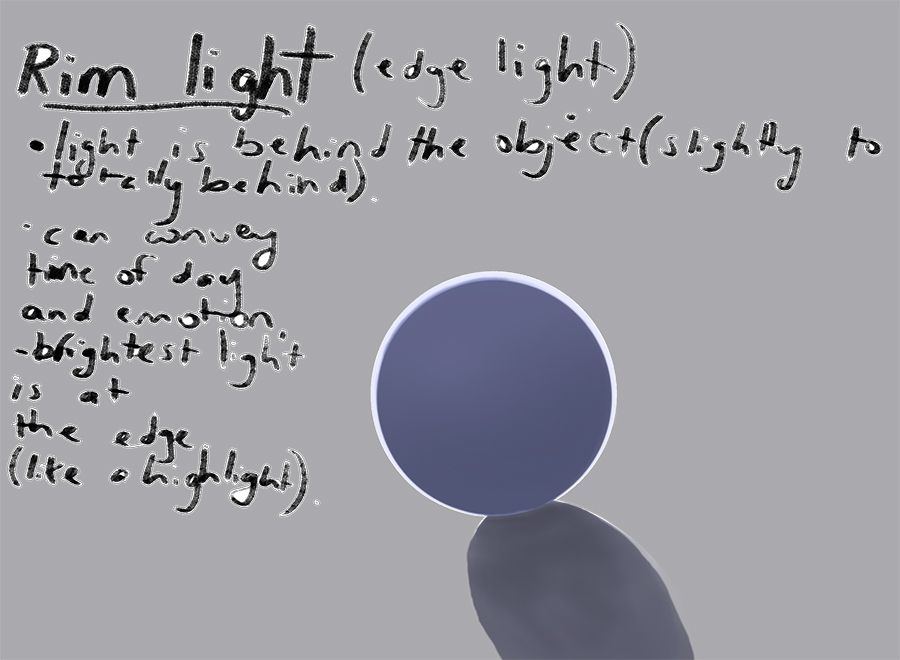 Rim light (edge light)
• light is behind the object (slightly to
totally behind).
· can convey
time of day
and emotion
- brightest light
is at
the edge
(like a highlight).